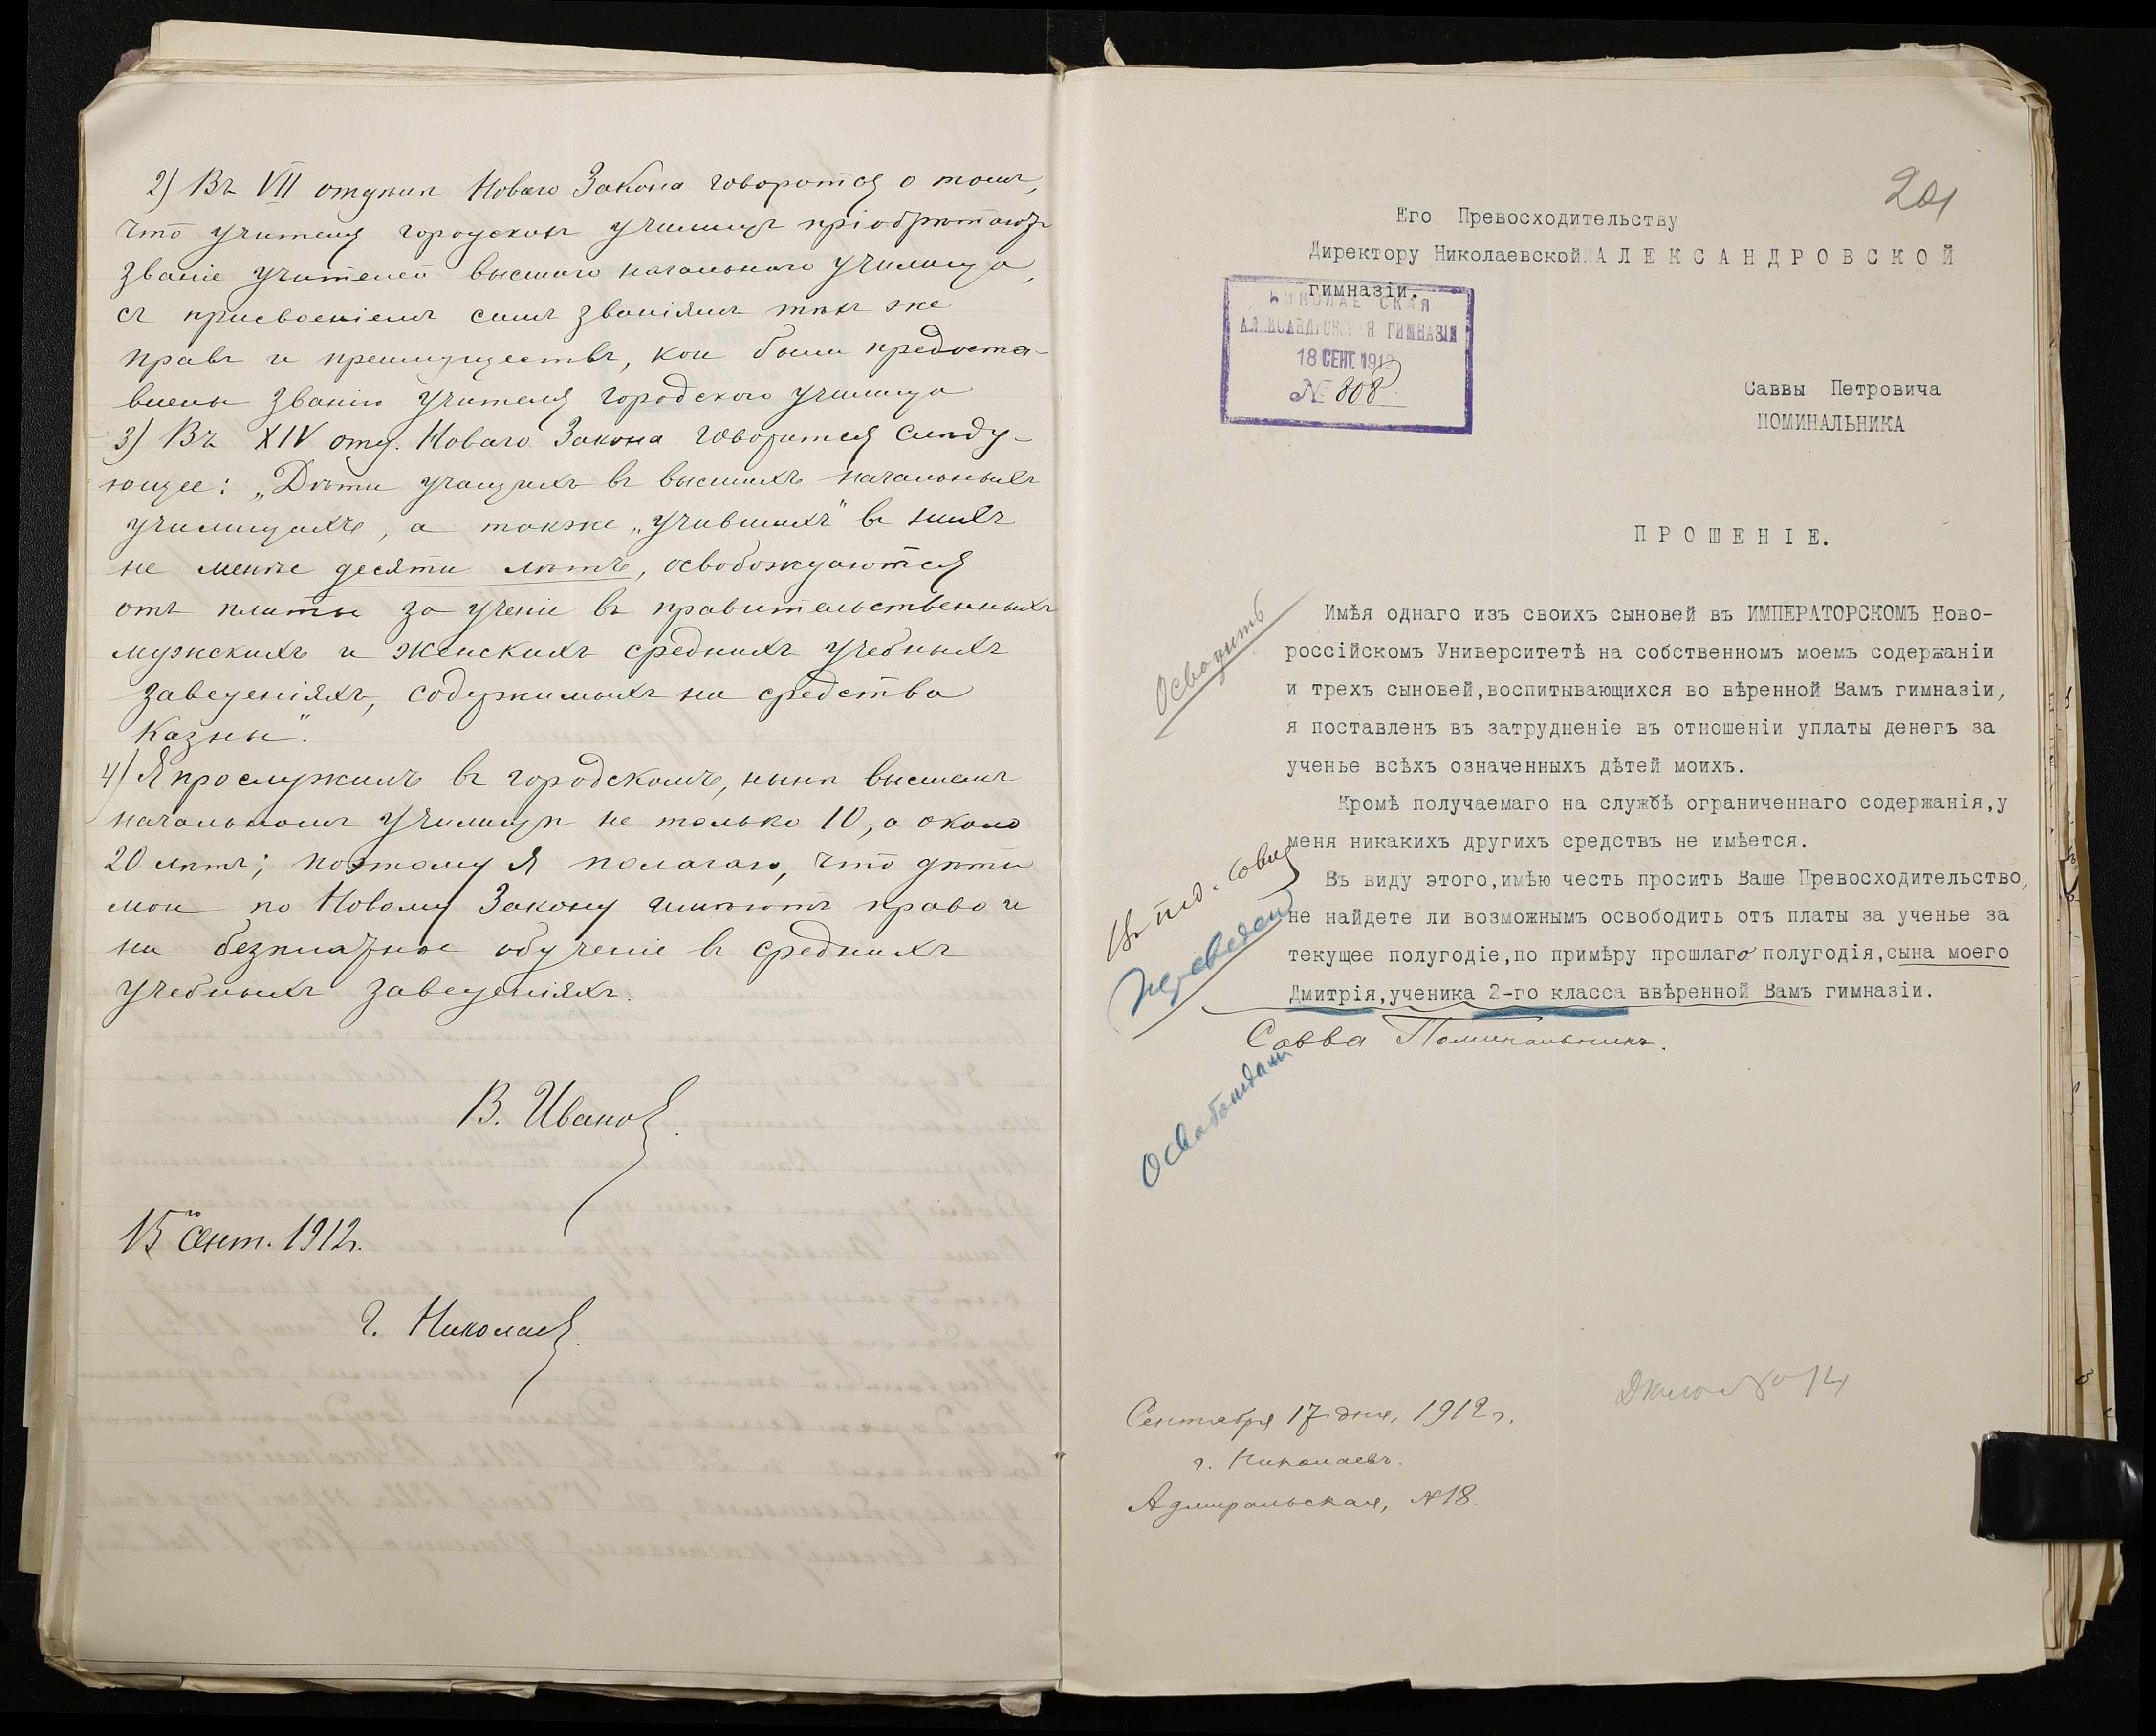 2) Въ VII отдѣлѣ Новаго Закона говорится о томъ,
что учителя городскихъ училищъ пріобрѣтаютъ
званіе учителей высшаго начальнаго училища,
съ присвоеніемъ симъ званіямъ тѣхъ же
правъ и преимуществъ, кои были предоста-
влены званію учителя городского училища
3) Въ XIV отд. Новаго Закона говорится слѣду-
ющее: „Дѣти учащихъ въ высшихъ начальныхъ
училищахъ, а также „учившихъ" въ нихъ
не менѣе десяти лѣтъ, освобождаются
отъ платы за ученіе въ правительственныхъ
мужскихъ и женскихъ среднихъ учебныхъ
заведеніяхъ, содержимыхъ на средства
казны".
4) Я прослужилъ въ городскомъ, нынѣ высшемъ
начальномъ училищѣ не только 10, а около
20 лѣтъ; поэтому я полагаю, что дѣти
мои по Новому Закону имѣютъ право и
на безплатное обученіе въ среднихъ
учебныхъ заведеніяхъ.
В. Ивановъ.
15го Сент. 1912г.
г. Николаевъ.
201
Его Превосходительству
Директору Николаевской АЛЕКСАНДРОВСКОЙ
гимназіи.
НИКОЛАЕВСКАЯ
АЛЕКСАНДРОВСКАЯ ГИМНАЗІЯ
18 СЕНТ. 1912
№ 808
Саввы Петровича
ПОМИНАЛЬНИКА
ПРОШЕНІЕ.
Имѣя однаго изъ своихъ сыновей въ ИМПЕРАТОРСКОМЪ Ново-
россійскомъ Университетѣ на собственномъ моемъ содержаніи
и трехъ сыновей,воспитывающихся во вѣренной Вамъ гимназіи,
я поставленъ въ затрудненіе въ отношеніи уплаты денегъ за
ученье всѣхъ означенныхъ дѣтей моихъ.
Кромѣ получаемаго на службѣ ограниченнаго содержанія,у
меня никакихъ другихъ средствъ не имѣется.
Въ виду этого,имѣю честь просить Ваше Превосходительство,
не найдете ли возможнымъ освободить отъ платы за ученье за
текущее полугодіе,по примѣру прошлаго полугодія,сына моего
Дмитрія,ученика 2-го класса ввѣренной Вамъ гимназіи.
Савва Поминальникъ.
Въ пед. совѣ
Переведенъ
Сентября 17 дня, 1912 г.
г. Николаевъ.
Адмиральская, №18.